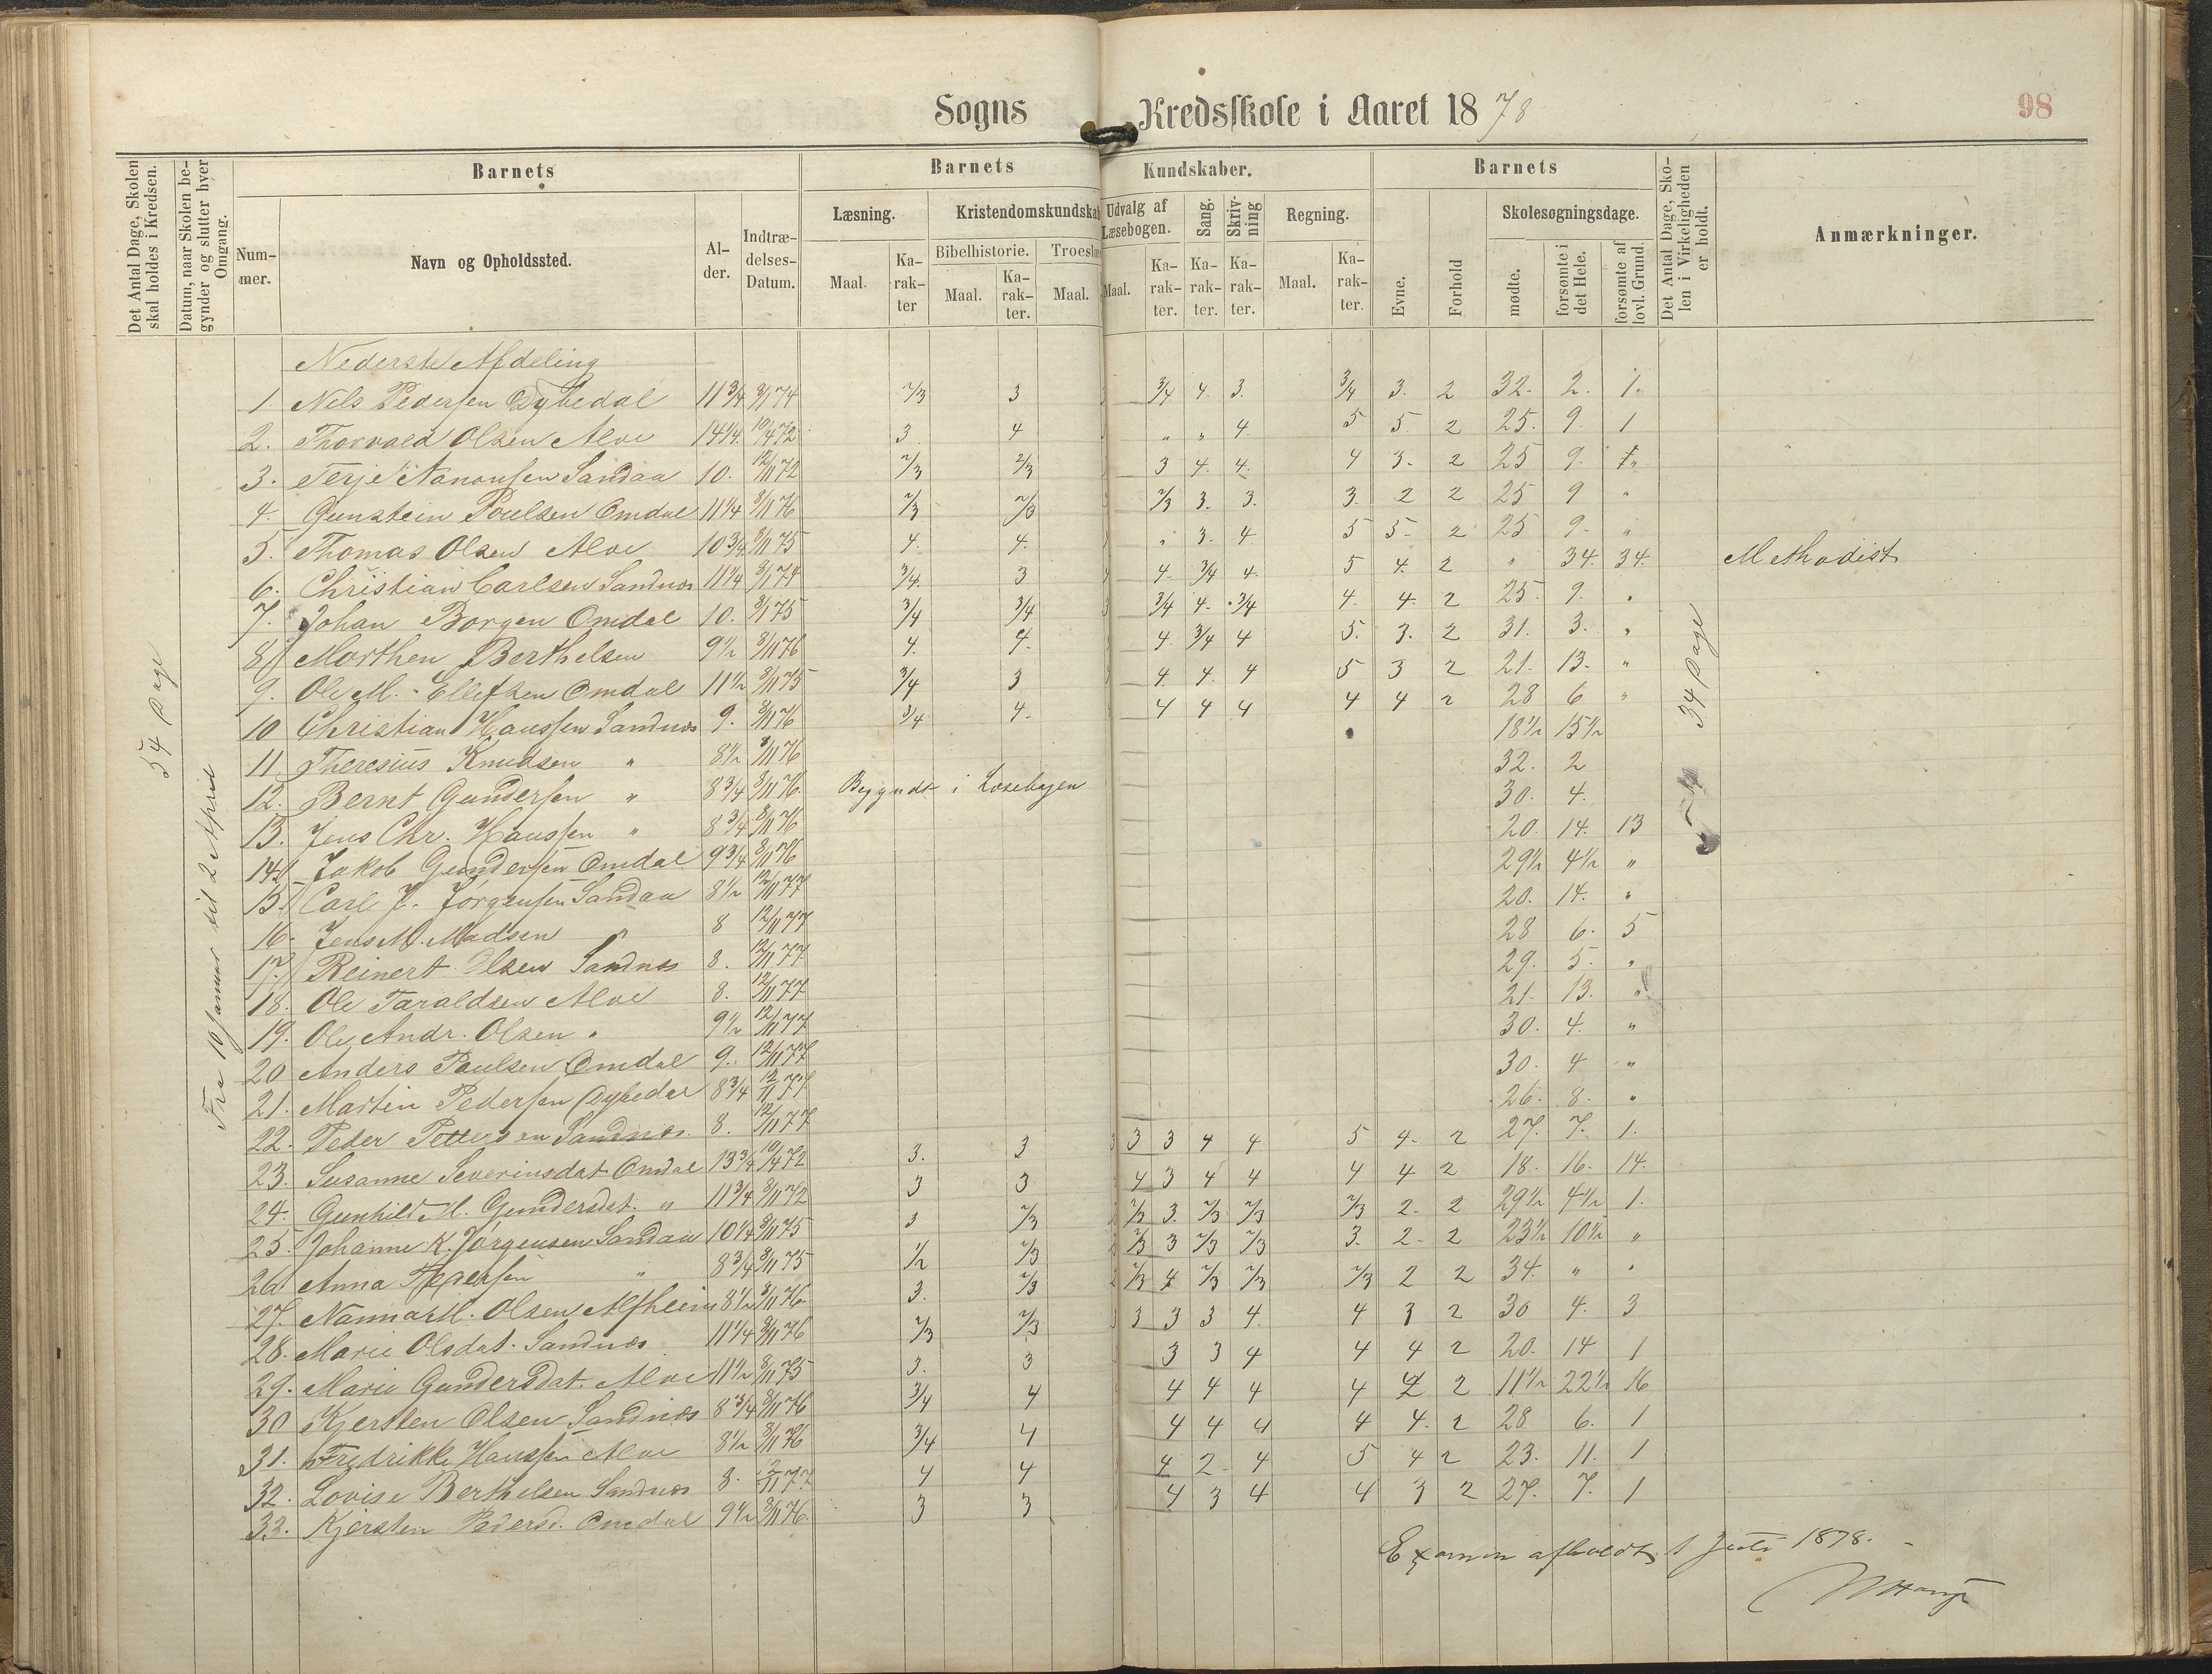 Sogns Kredsskole i Aaret 1878
98
Det Antal Dage, Skolen skal holdes i Kredsen.
Datum, naar Skolen begynder og slutter hver Omgang.
Barnets
Nummer.
Navn og Opholdssted.
Alder.
Indtrædelses-Datum.
Barnets Kundskaber.
Læsning.
Maal.
Karakter
Kristendomskundskab
Bibelhistorie.
Maal.
Karakter.
Troeslæ
Maal.
Udvalg af Læsebogen.
Maal.
Karakter.
Sang.
Karakter.
Skrivning
Karakter.
Regning.
Maal.
Karakter.
Barnets
Evne.
Forhold
Skolesøgningsdage.
mødte.
forsømte i det Hele.
forsømte af lovl. Grund.
Det Antal Dage, Skolen i Virkeligheden er holdt.
Anmærkninger.
54 Dage
Fra 10 Januar til 2 April
34 Dage
Nederste Afdeling
1. Nels Pedersen Dybedal 11 3/4 8/1 74 2/3 3 3/4 4. 3. 3/4 3. 2 32. 2. 1.
2. Thorvald Olsen Alve 14 1/4. 10/4 72 3 4 " " 4. 5 5. 2 25. 9. 1
3. Terje Nanousen Sandaa 10. 12/11 72 2/3 2/3 3 4. 4. 4 3. 2 25 9.
4. Gunstein Poulsen Omdal 11 1/4 8/11 76 2/3 2/3 2/3 3. 3. 3. 2 2 25 9 "
5. Thomas Olsen Alve 10 3/4 8/11 75 4. 4. " 3. 4 5 5. 2 25 9. "
6. Christian Carlsen Sandnæs 11 1/4 8/1 74 3/4. 3 4. 3/4 4. 5 4. 2 " 34. 34. Methodist
7. Johan Borgen Omdal 10. 8/1 75 3/4 3/4 3/4 4. 3/4 4. 4. 2 25. 9. "
8 Morthen Berthelsen 9 1/2 8/11 76 4. 4. 4. 3/4 4 5. 3. 2 31. 3. "
9. Ole M. Ellefsen Omdal 11 1/2 8/11 75 3/4 3 4. 4. 4 5 3 2 21. 13. "
10 Christian Hanssen Sandnæs 9. 8/11 76 3/4 4. 4 4 4 4 4 2 28 6 "
11. Theresius Knudsen " 8 1/2 8/11 76 18 1/2 15 1/2
12. Bernt Gundersen " 8 3/4 8/11 76. Begyndt i Læsebogen 32. 2
13. Jens Chr. Hanssen " 8 3/4 8/11 76 30. 4.
14 Jakob Gundersen Omdal 9 3/4 8/11 76 20. 14. 13
15. Carl J. Jørgensen Sandaa 8 1/2 12/11 77 29 1/2 4 1/2 "
16. Jens M. Madsen " 8 12/11 77 20. 14. "
17. Reinert Olsen Sandnæs 8. 12/11 77 28 6. 5
18. Ole Taraldsen Alve 8. 12/11 77 29. 5. "
19. Ole Andr. Olsen " 9 1/2 12/11 77 21. 13. "
20 Anders Paulsen Omdal 9. 12/11 77 30. 4. "
21. Martin Pedersen Dybedal 8 3/4 12/11 77. 30. 4 "
22. Peder Pettersen Sandnæs. 8. 12/11 77 26. 8. "
23. Susanne Severinsdat. Omdal 13 3/4 10/4 72 3. 3 3 3 4 4 5 4. 2 27. 7. 1.
24. Gunhild M. Gundersdat. " 11 3/4 8/11 72 3 3 4 3 4 4 4 4 2 18. 16. 14.
25. Johanne K. Jørgensen Sandaa 10 1/4 8/11 75 3 2/3 2/3 3. 2/3 2/3 2/3 2. 2 29 1/2 4 1/2 1.
26 Anna " 8 3/4 8/11 75 1/2 2/3 2/3 3 2/3 2/3 3. 2. 2 23 1/2 10 1/2 "
27. Nanna M. Olsen Alfheim 8 1/2 8/11 76. 3. 2/3 2/3 4 2/3 2/3 2/3 2 2 34. " "
28. Marie Olsdat. Sandnæs 11 1/4 8/11 76 2/3 2/3 3 3 3 4. 4 3 2 30 4. 3
29. Marie Gundersdat. Alve 11 1/2 8/11 75 3. 3 3 3 4 4 4 2 20. 14 1
30 Kjersten Olsen Sandnæs 8 3/4 8/11 76 3/4 4 4 4 4 4 4 2 11 1/2 22 1/2 16
31. Fredrikke Hanssen Alve 8 1/2 8/11 76 3/4 4 4 4 4 4 4. 2 28 6. 1
32. Lovise Berthelsen Sandnæs 8. 12/11 77 4 4 4 2 4 5 4 2 23. 11. 1
33. Kjersten Pedersd. Omdal 9 1/2 8/11 76. 3 3 4 3 4 4 3 2 27. 7. 1
Examen afholdt 1 Juli 1878.